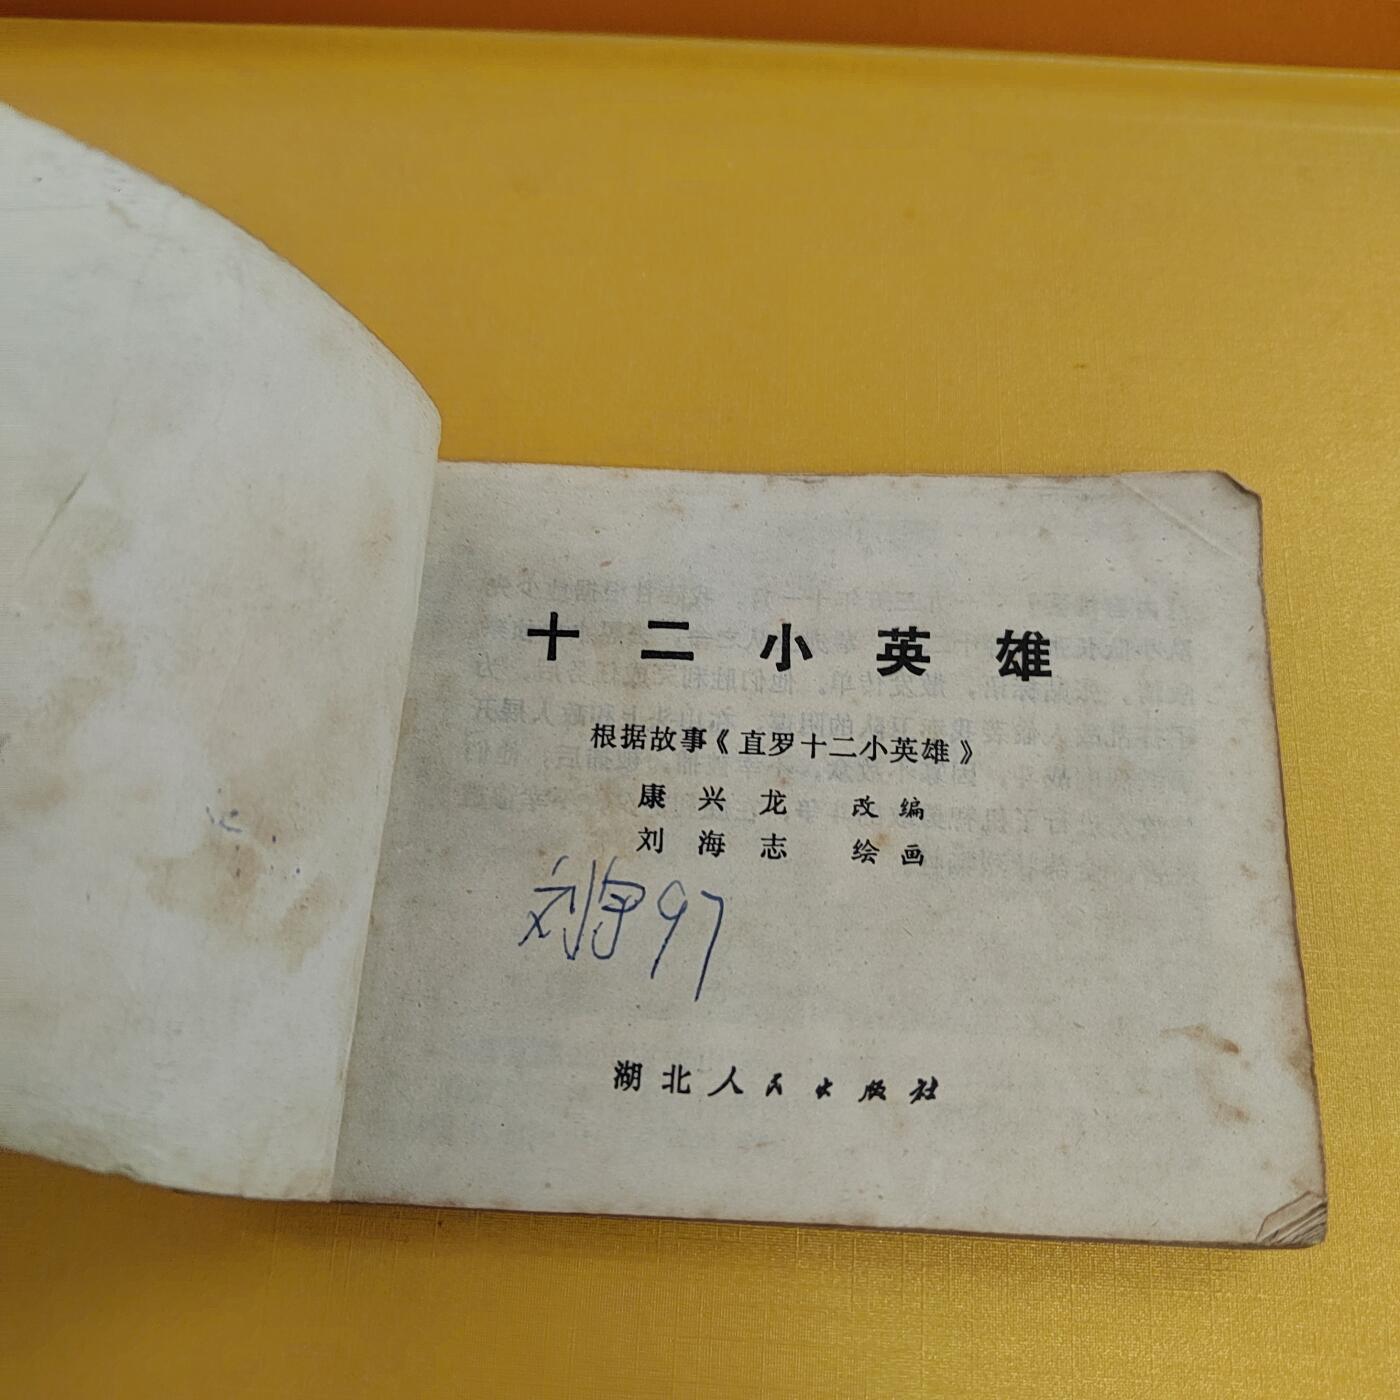 十二小英雄
根据故事《直罗十二小英雄》
康兴龙 改编
刘海志 绘画
97
湖北人民出版社